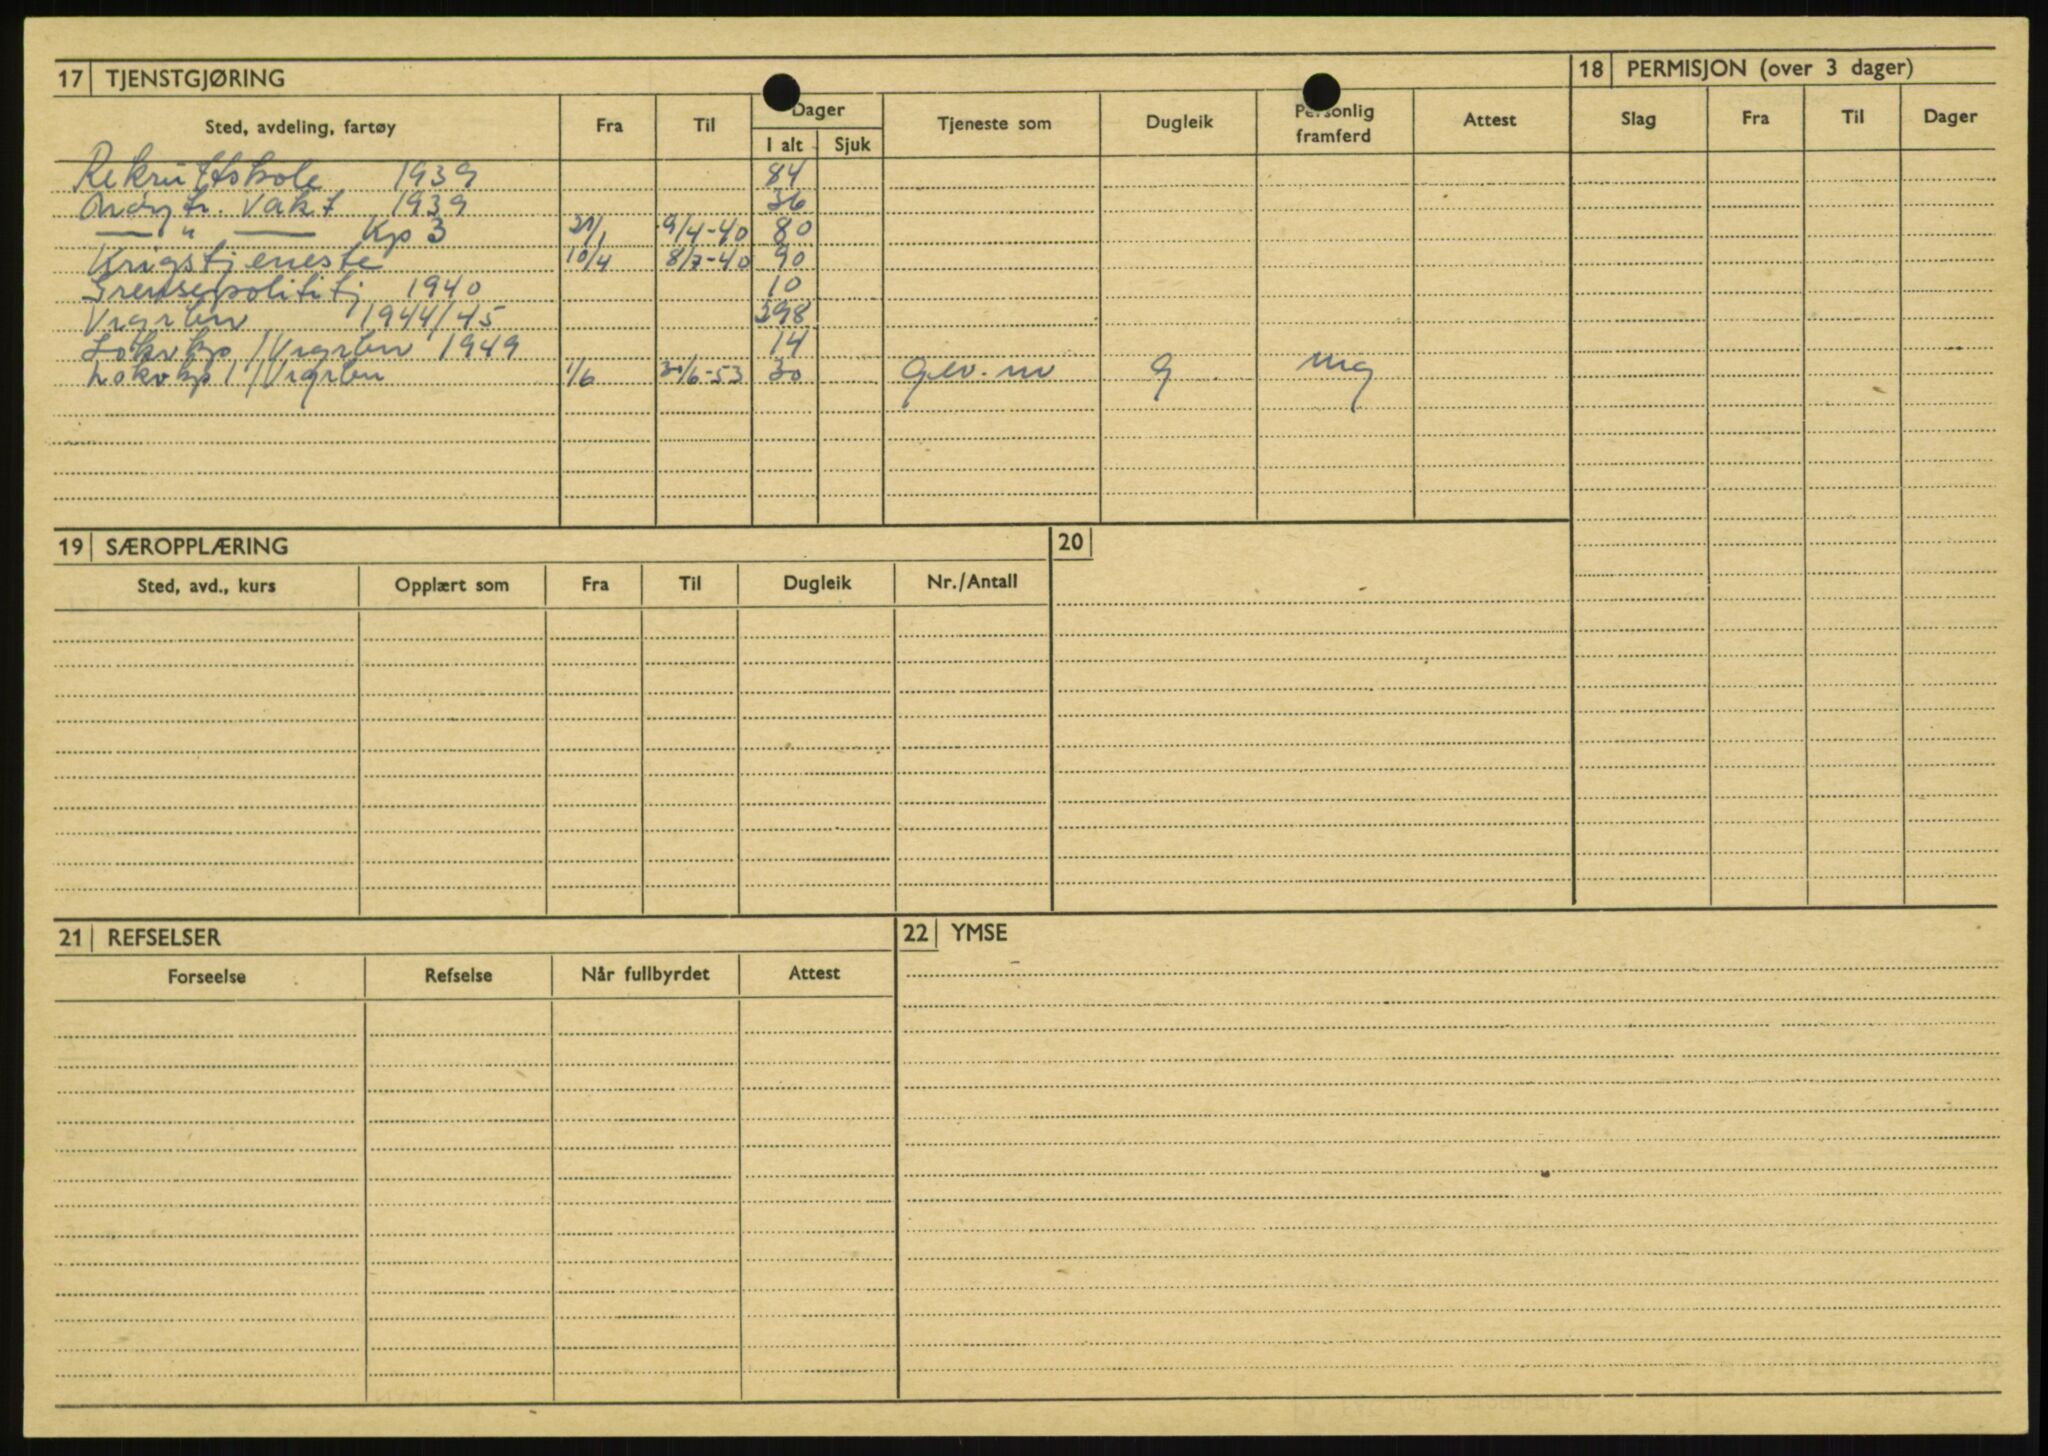 17 TJENSTGJØRING
18 PERMISJON (over 3 dager)
Sted, avdeling, fartøy Fra Til Dager Tjeneste som Dugleik Personlig framferd Attest Slag Fra Til Dager
I alt Sjuk
Rekruttskole 1939 84
Nøytr. vakt 1939 36
— " — Kp 3 21/1 9/4-40 80
Krigstjeneste 10/4 8/7-40 90
Grensepoliti 1940 10
Vrgrbn 1944/45 398
Lokvkp 1/Vrgrbn 1949 14
Lokvkp 1/Vrgrbn 1/6 30/6-53 30 gev. m g mg
19 SÆROPPLÆRING
20
Sted, avd., kurs Opplært som Fra Til Dugleik Nr./Antall
21 REFSELSER
22 YMSE
Forseelse Refselse Når fullbyrdet Attest